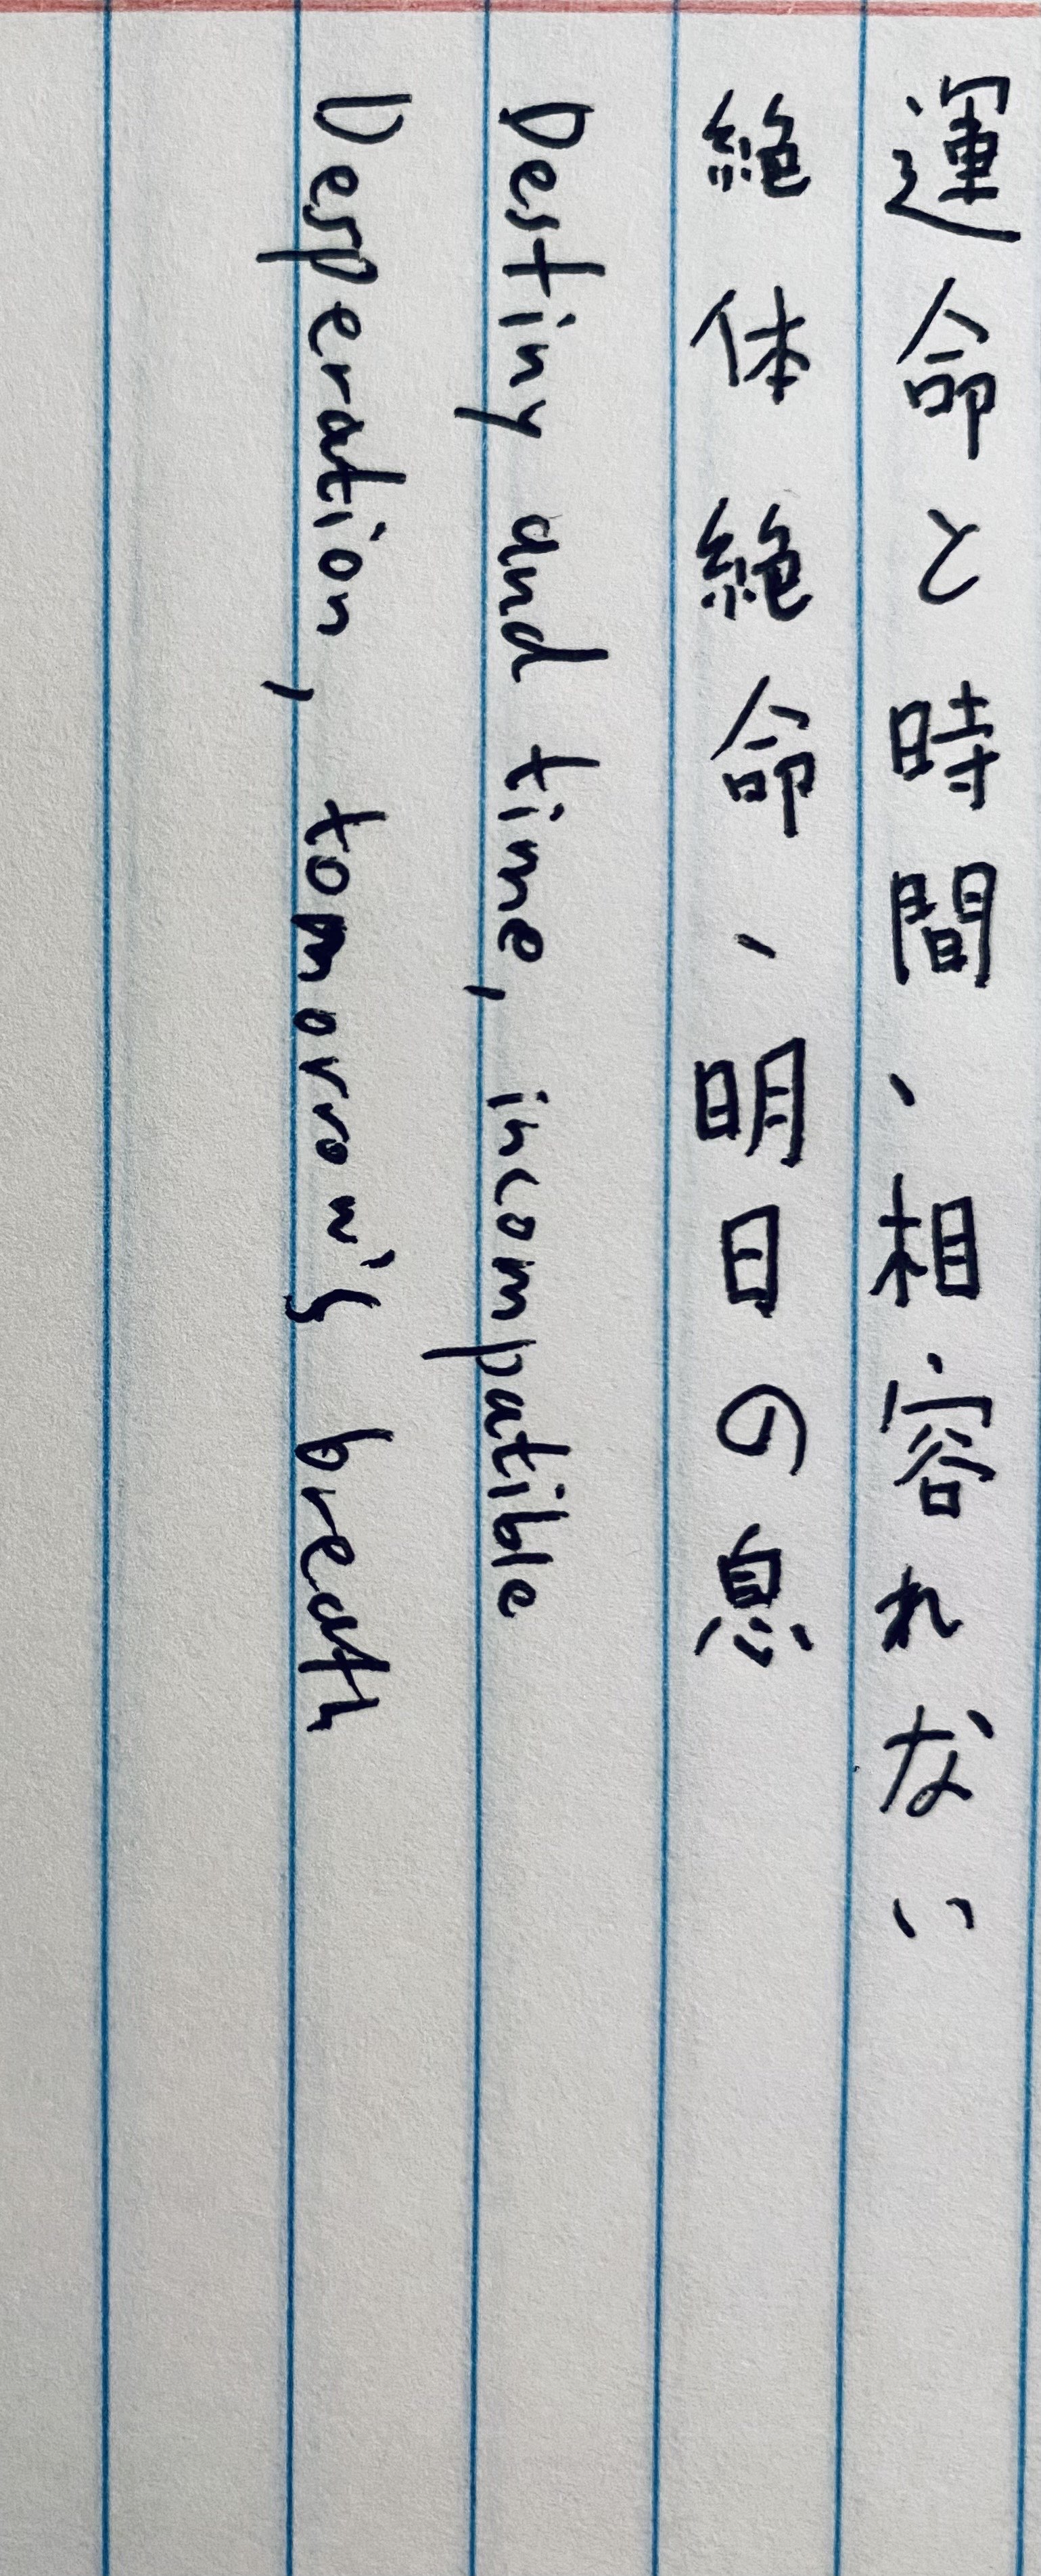 運命と時間、相容れない
絶体絶命、明日の息
Destiny and time, incompatible
Desperation, tomorrow's breath